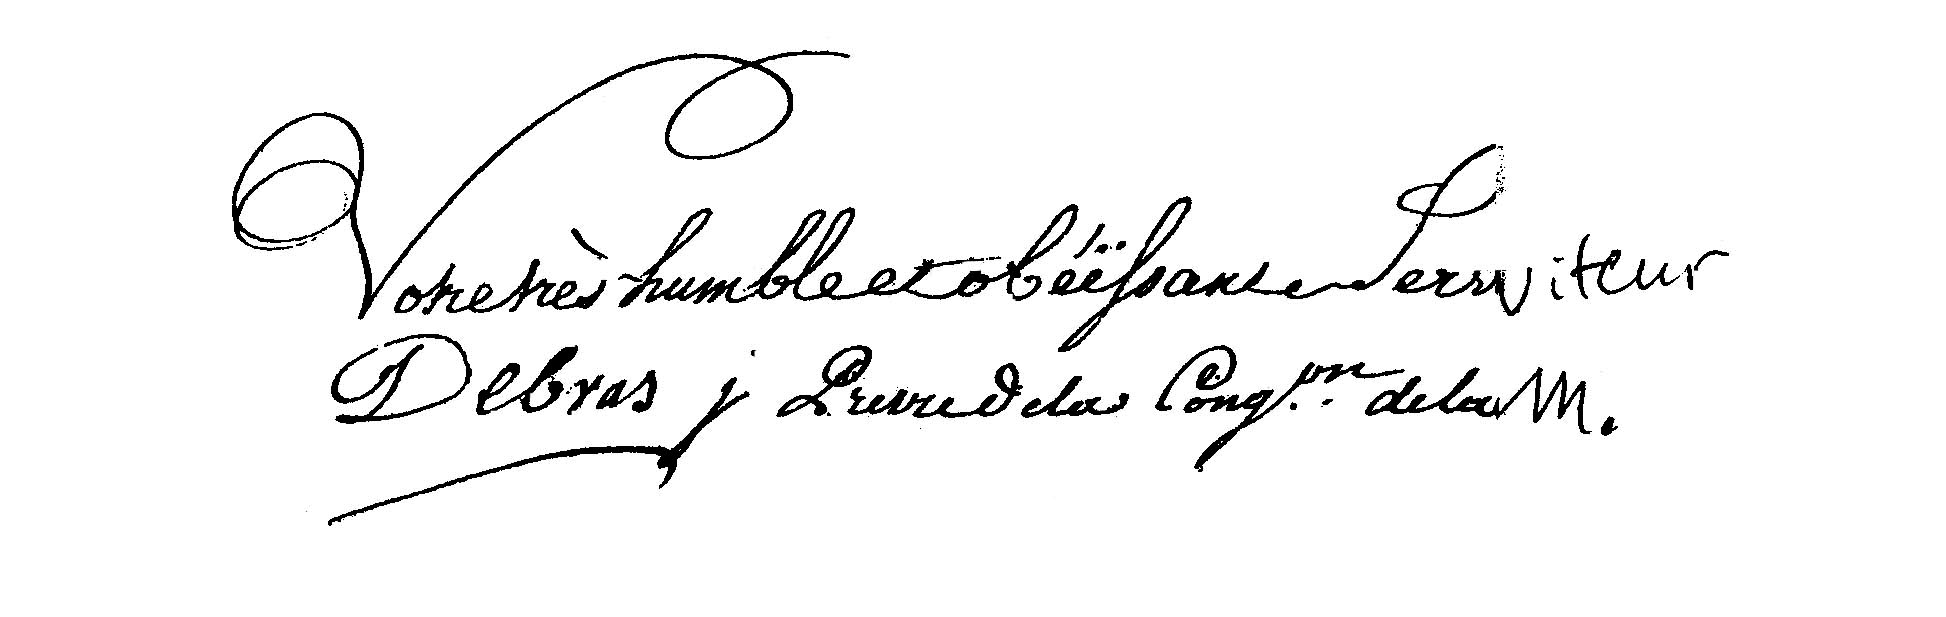 Votre très humble et obéïssant Serviteur
Debras j Prevre de la Cong.on de la M.